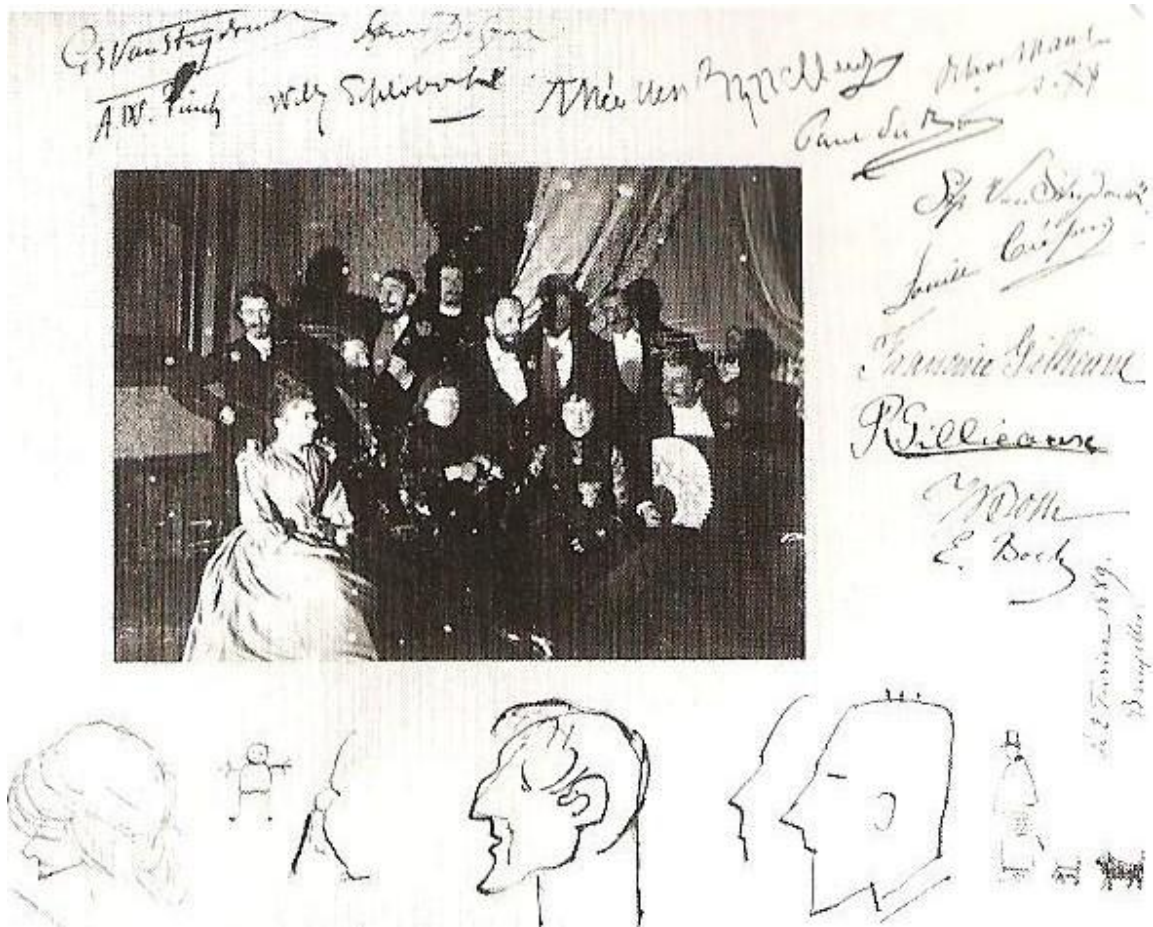 G S Van Strydonck
A. W. Finch
Willy Schlobach
Théo van Rysselberghe
Octave Maus
d. XX
Paul Du Bois
Van Strydonck
Louise
Francine Gillieaux
P Gillieaux
E. Boch
Février 1889.
Bruxelles